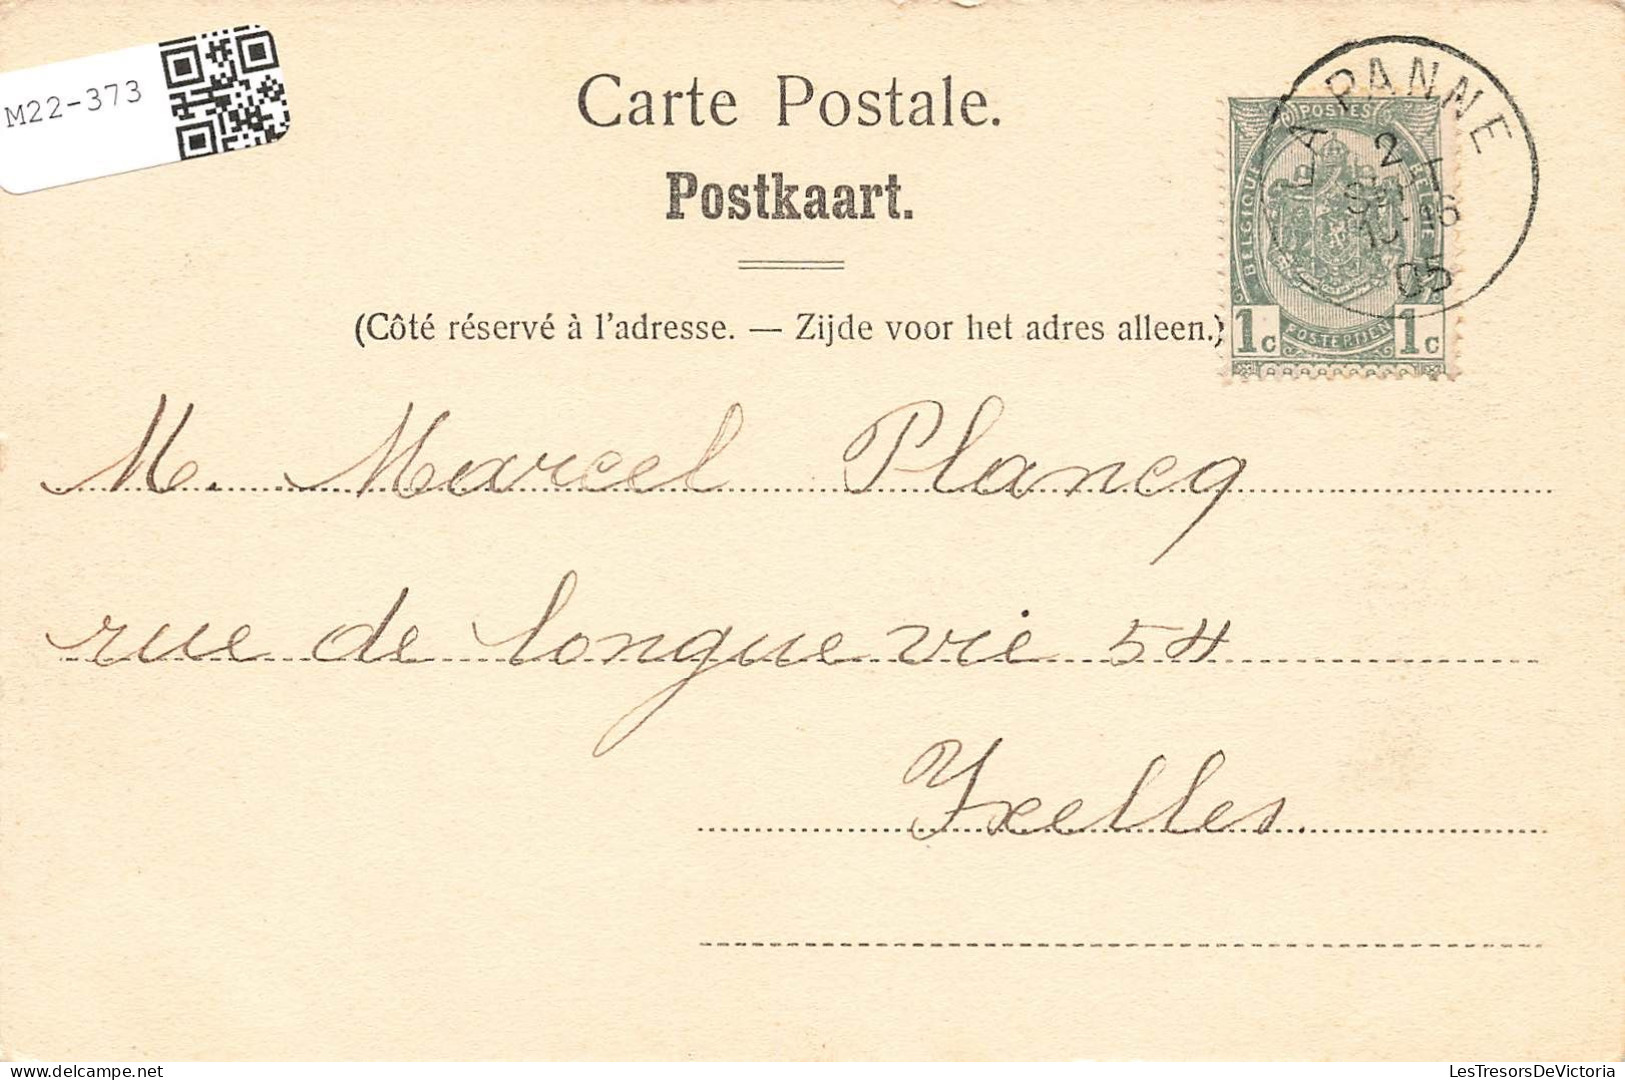 M22-373
Carte Postale.
Postkaart.
(Côté réservé à l'adresse. — Zijde voor het adres alleen.)
LA PANNE
05
POSTES
BELGIQUE
BELGIË
POSTERIJEN
1c 1c
M. Marcel Plancq
rue de longue vie 54
Ixelles.
delcampe.net
LesTresorsDeVictoria